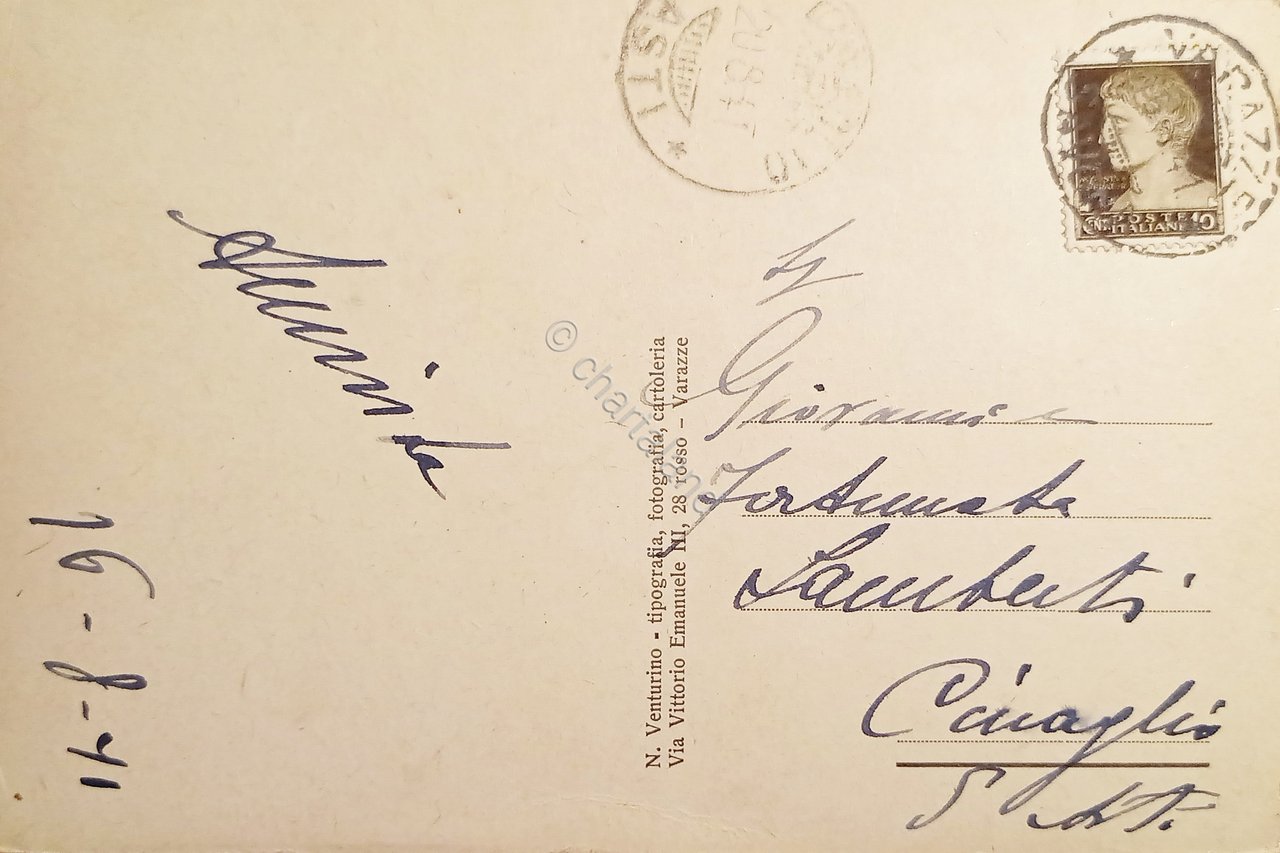 Armida
16-8-41
N. Venturino - tipografia, fotografia, cartoleria
Via Vittorio Emanuele III, 28 rosso - Varazze
Giovanni e
Fortunata
Lamberti
Cinaglio
ASTI
20.8.41
10
VARAZZE
POSTE
ITALIANE
10
© chartaland